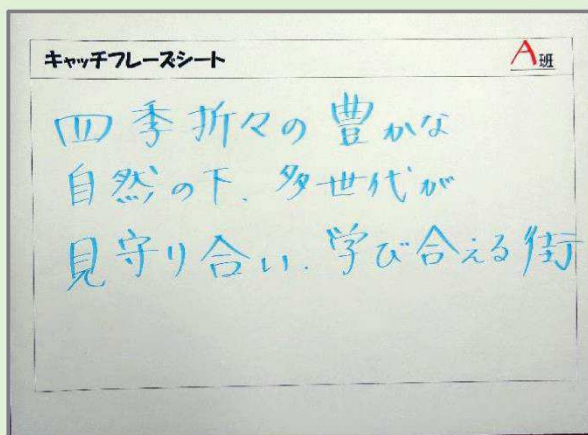 キャッチフレーズシート
A班
四季折々の豊かな
自然の下、多世代が
見守り合い、学び合える街